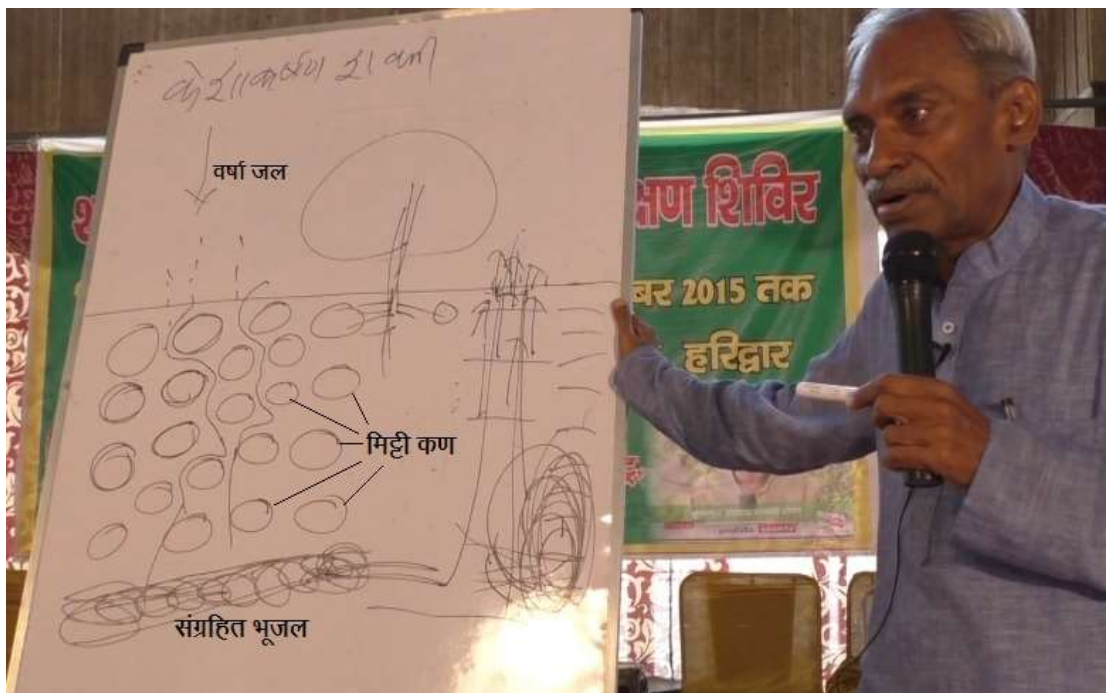 केशाकर्षण शक्ती
वर्षा जल
मिट्टी कण
संग्रहित भूजल
क्षण शिविर
बर 2015 तक
हरिद्वार